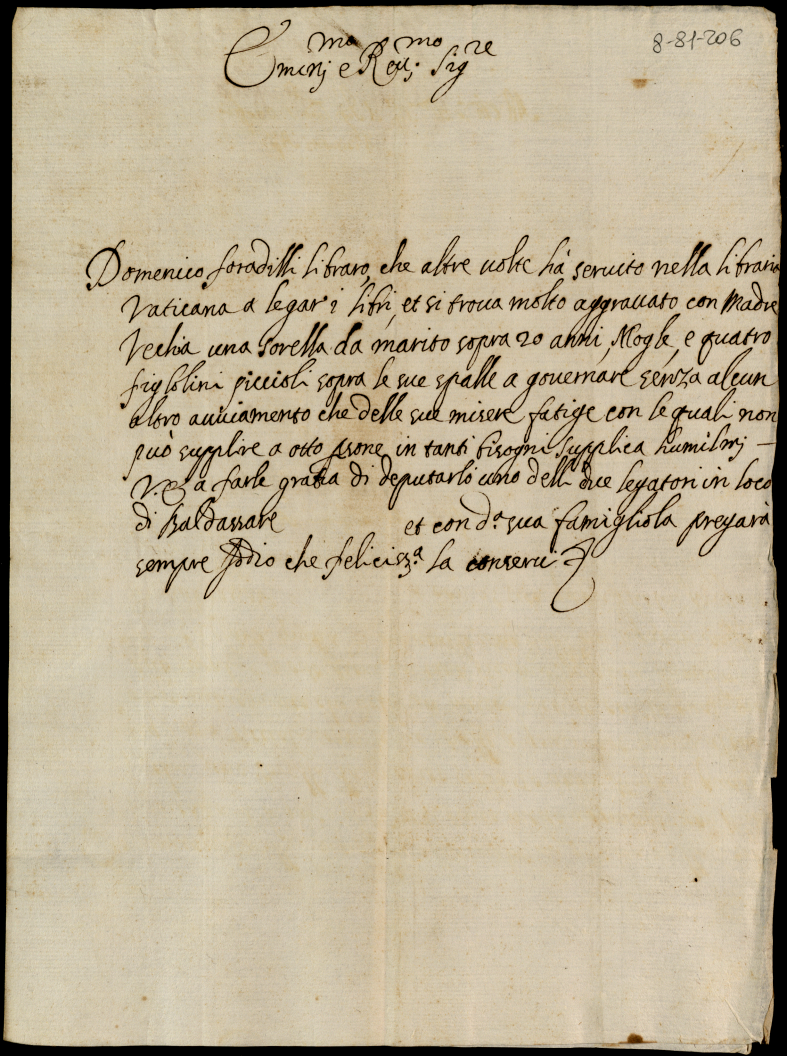 8-81-206
Emin.mo e Reu.mo Sig.re
Domenico foradilli libraro, che altre uolte hà seruito nella libraria
Vaticana a legar i libri, et si troua molto aggrauato con Madre
Vechia una sorella da marito sopra 20 anni, Mogle, e quatro
figlolini piccioli sopra le sue spalle a gouernare senza alcun
altro auuiamento che delle sue misere fatige con le quali non
può supplire a otto psone in tanti bisogni supplica humilm.
V.E. a farle gratia di deputarlo uno delli due legatori in loco
di Baldassare et con d.a sua famigliola pregarà
sempre Iddio che feliciss.a la conserui